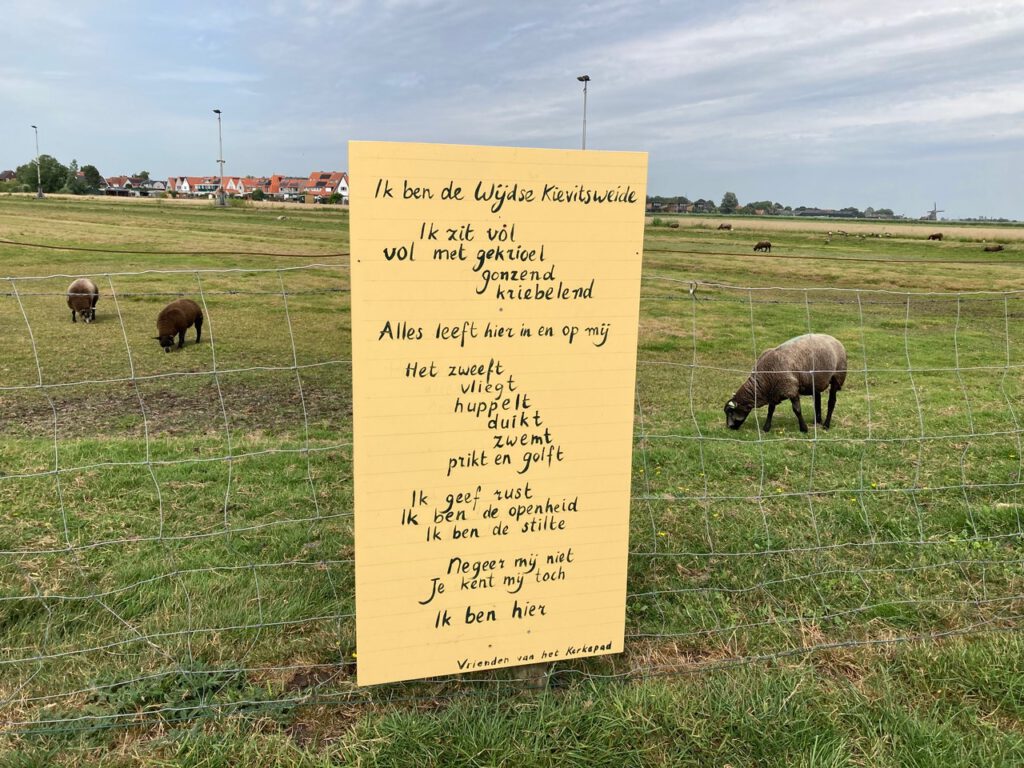 Ik ben de Wijdse Kievitsweide
Ik zit vól
vol met gekrioel
gonzend
kriebelend
Alles leeft hier in en op mij
Het zweeft
vliegt
huppelt
duikt
zwemt
prikt en golft
Ik geef rust
Ik ben de openheid
Ik ben de stilte
Negeer mij niet
Je kent mij toch
Ik ben hier
Vrienden van het Kerkepad